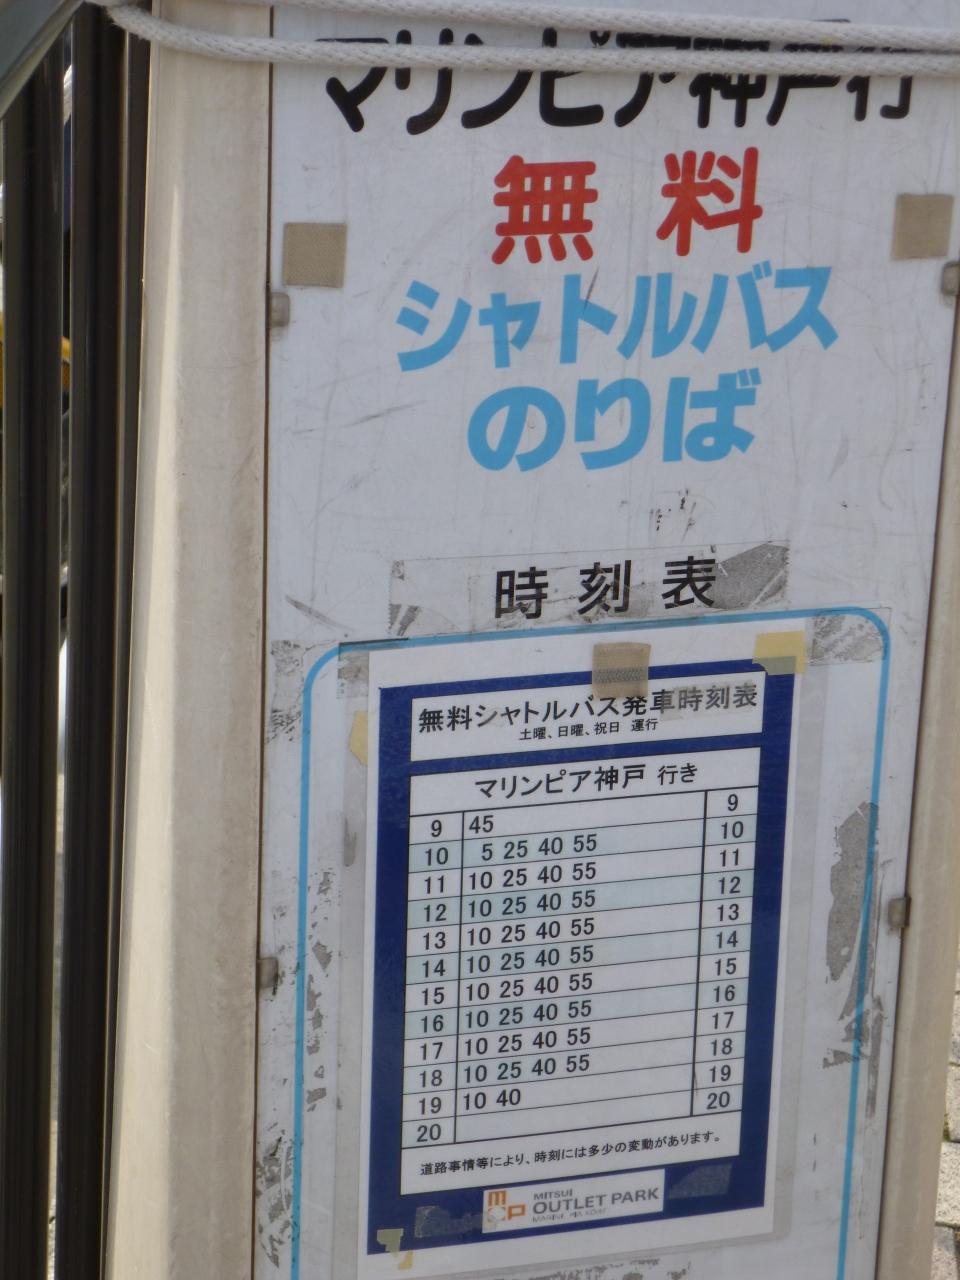 マリンピア神戸行
無料
シャトルバス
のりば
時刻表
無料シャトルバス発車時刻表
土曜、日曜、祝日 運行
マリンピア神戸 行き
9 45 9
10 5 25 40 55 10
11 10 25 40 55 11
12 10 25 40 55 12
13 10 25 40 55 13
14 10 25 40 55 14
15 10 25 40 55 15
16 10 25 40 55 16
17 10 25 40 55 17
18 10 25 40 55 18
19 10 40 19
20 20
道路事情等により、時刻には多少の変動があります。
mop MITSUI
OUTLET PARK
MARINE PIA KOBE